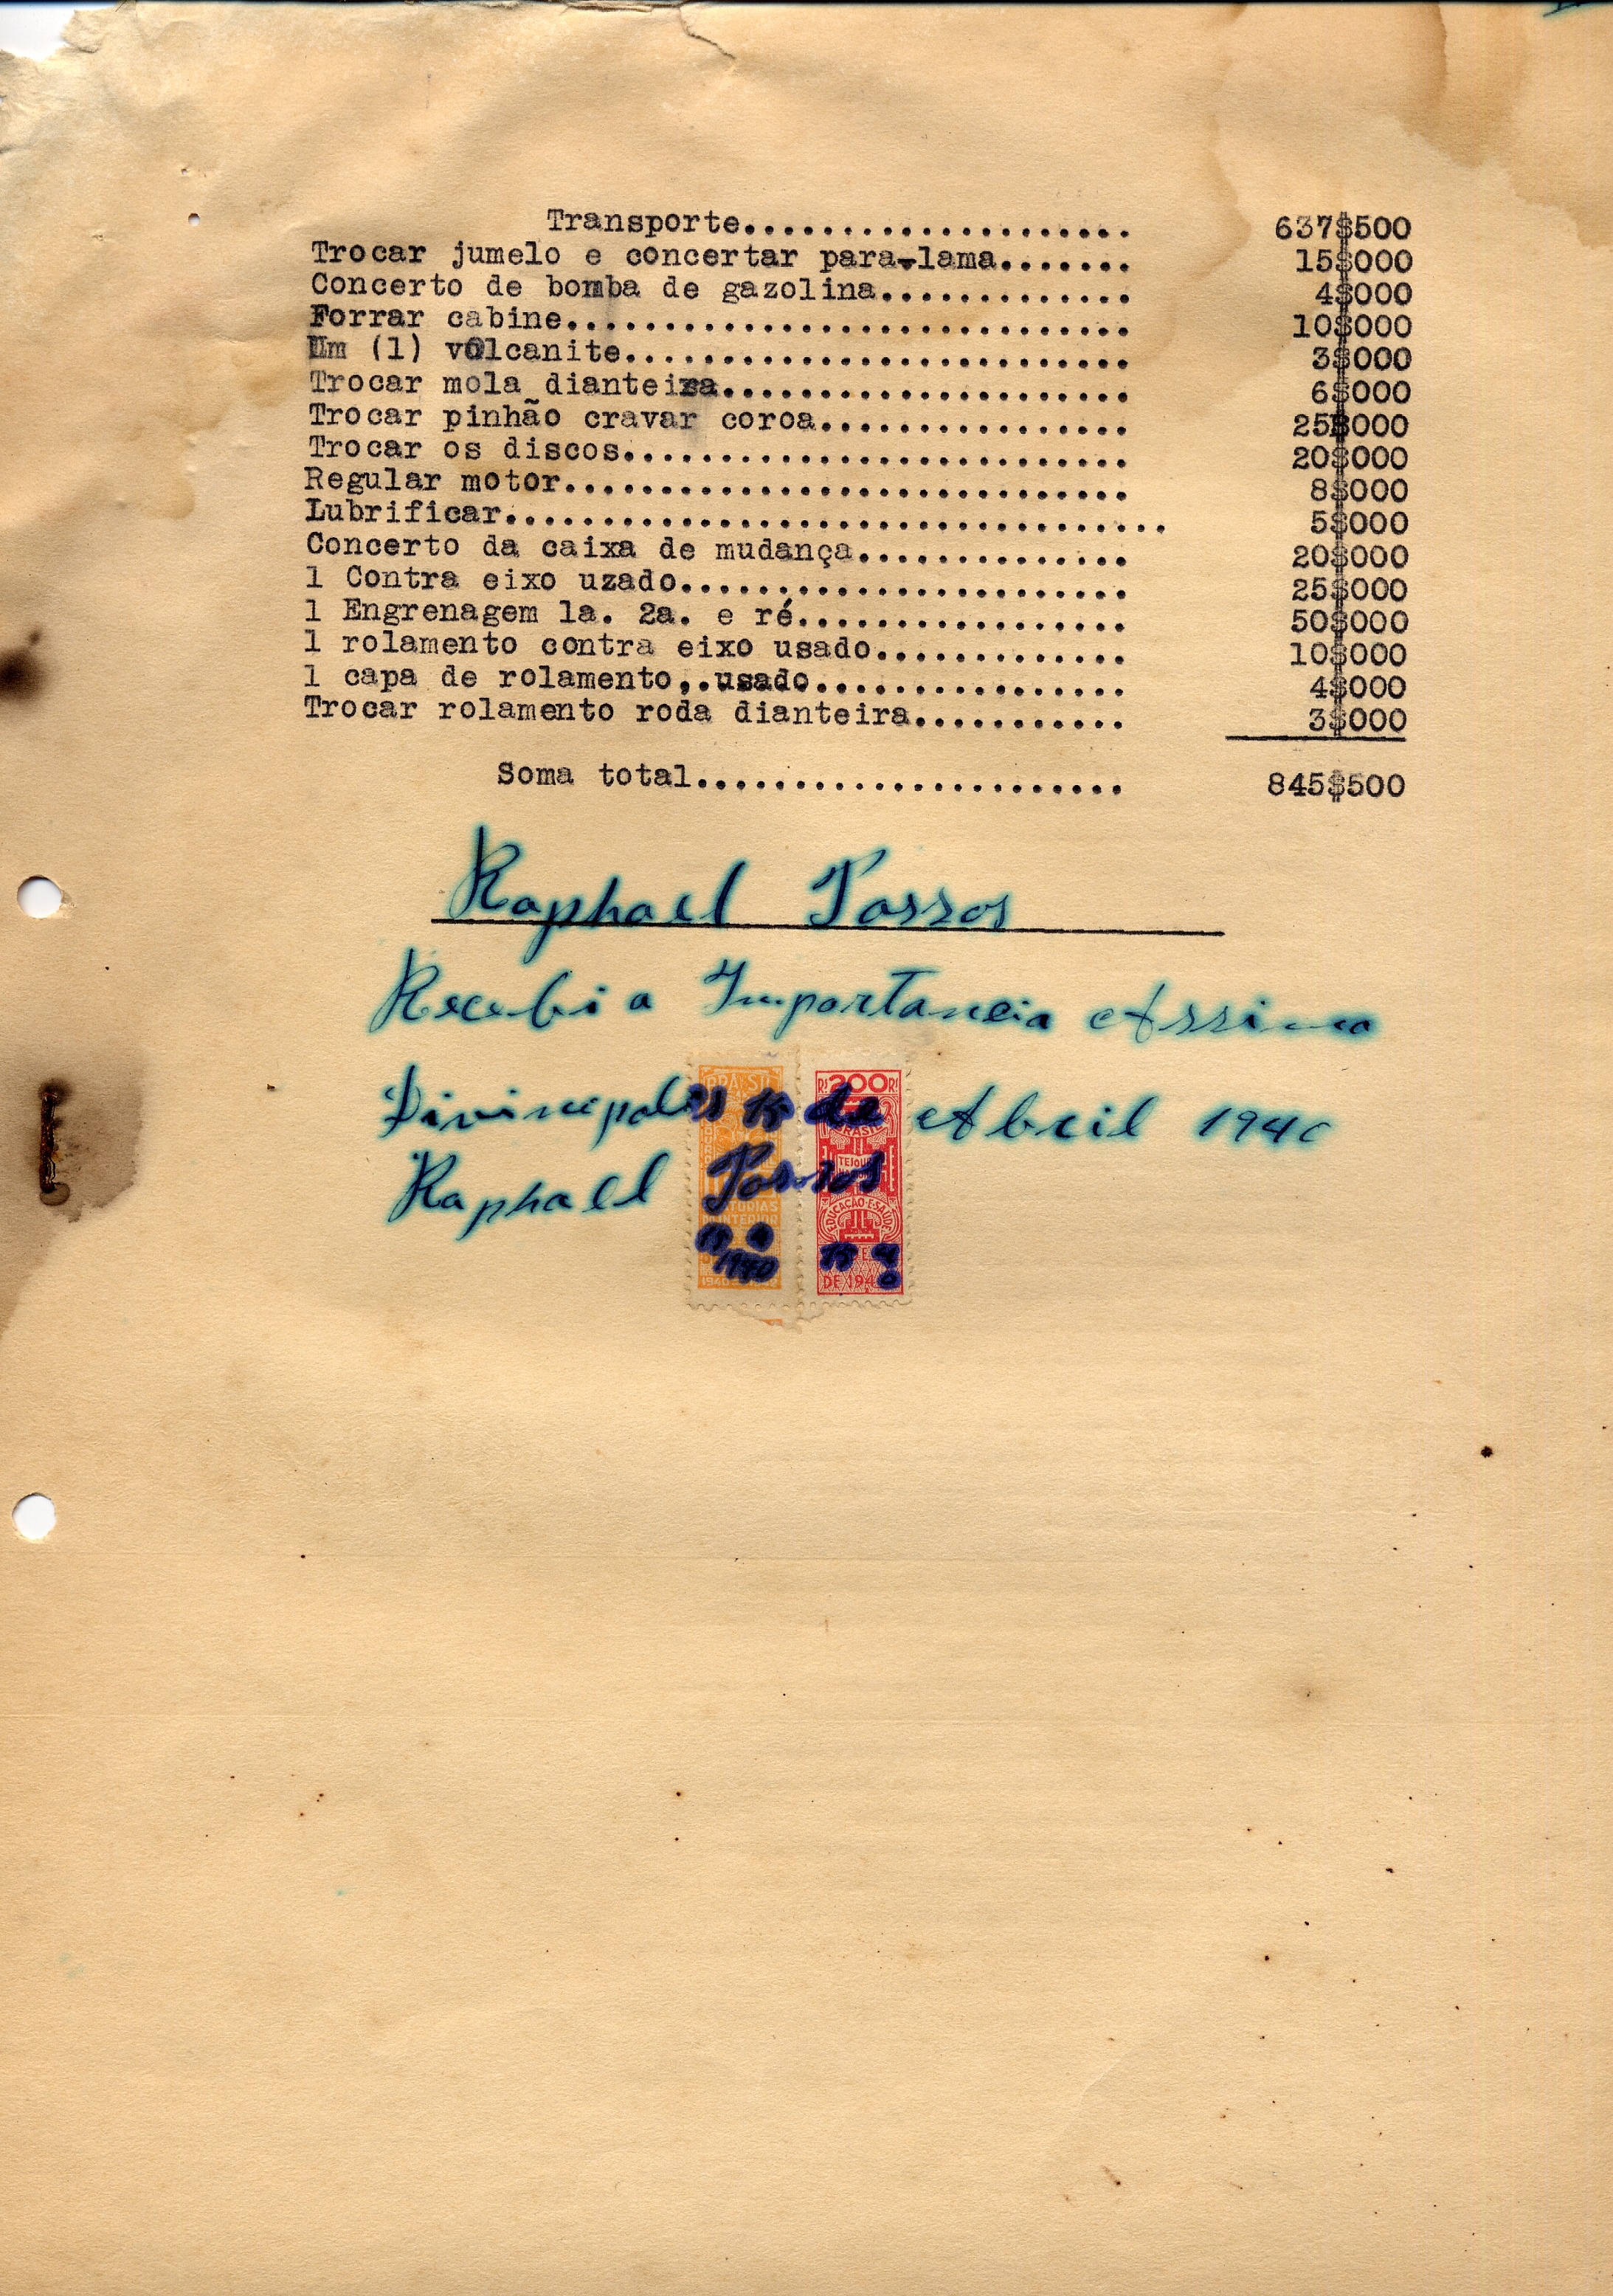 Transporte.................... 637$500
Trocar jumelo e concertar para-lama....... 15$000
Concerto de bomba de gazolina............. 4$000
Forrar cabine............................. 10$000
Um (1) volcanite.......................... 3$000
Trocar mola dianteira..................... 6$000
Trocar pinhão cravar coroa................ 25$000
Trocar os discos.......................... 20$000
Regular motor............................. 8$000
Lubrificar.................................. 5$000
Concerto da caixa de mudança.............. 20$000
1 Contra eixo uzado....................... 25$000
1 Engrenagem 1a. 2a. e ré................. 50$000
1 rolamento contra eixo usado............. 10$000
1 capa de rolamento,.usado................ 4$000
Trocar rolamento roda dianteira........... 3$000
Soma total...................... 845$500
Raphael Passos
Recebi a Importancia Assima
Divinopolis 15 de Abril 1940
Raphael Passos
BRASIL
RS 200 RS
BRASIL
EDUCAÇÃO E SAÚDE
DO INTERIOR
15 4
1940
15 4
DE 194